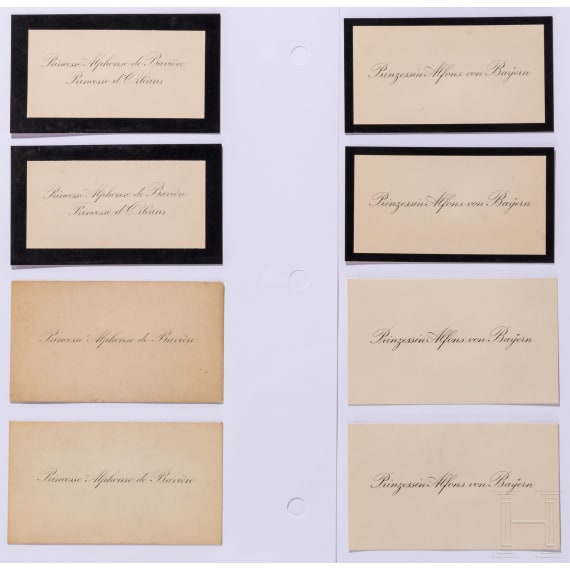 Princesse Alphonse de Bavière
Princesse d'Orléans
Princesse Alphonse de Bavière
Princesse d'Orléans
Princesse Alphonse de Bavière
Princesse Alphonse de Bavière
Prinzessin Alfons von Bayern
Prinzessin Alfons von Bayern
Prinzessin Alfons von Bayern
Prinzessin Alfons von Bayern